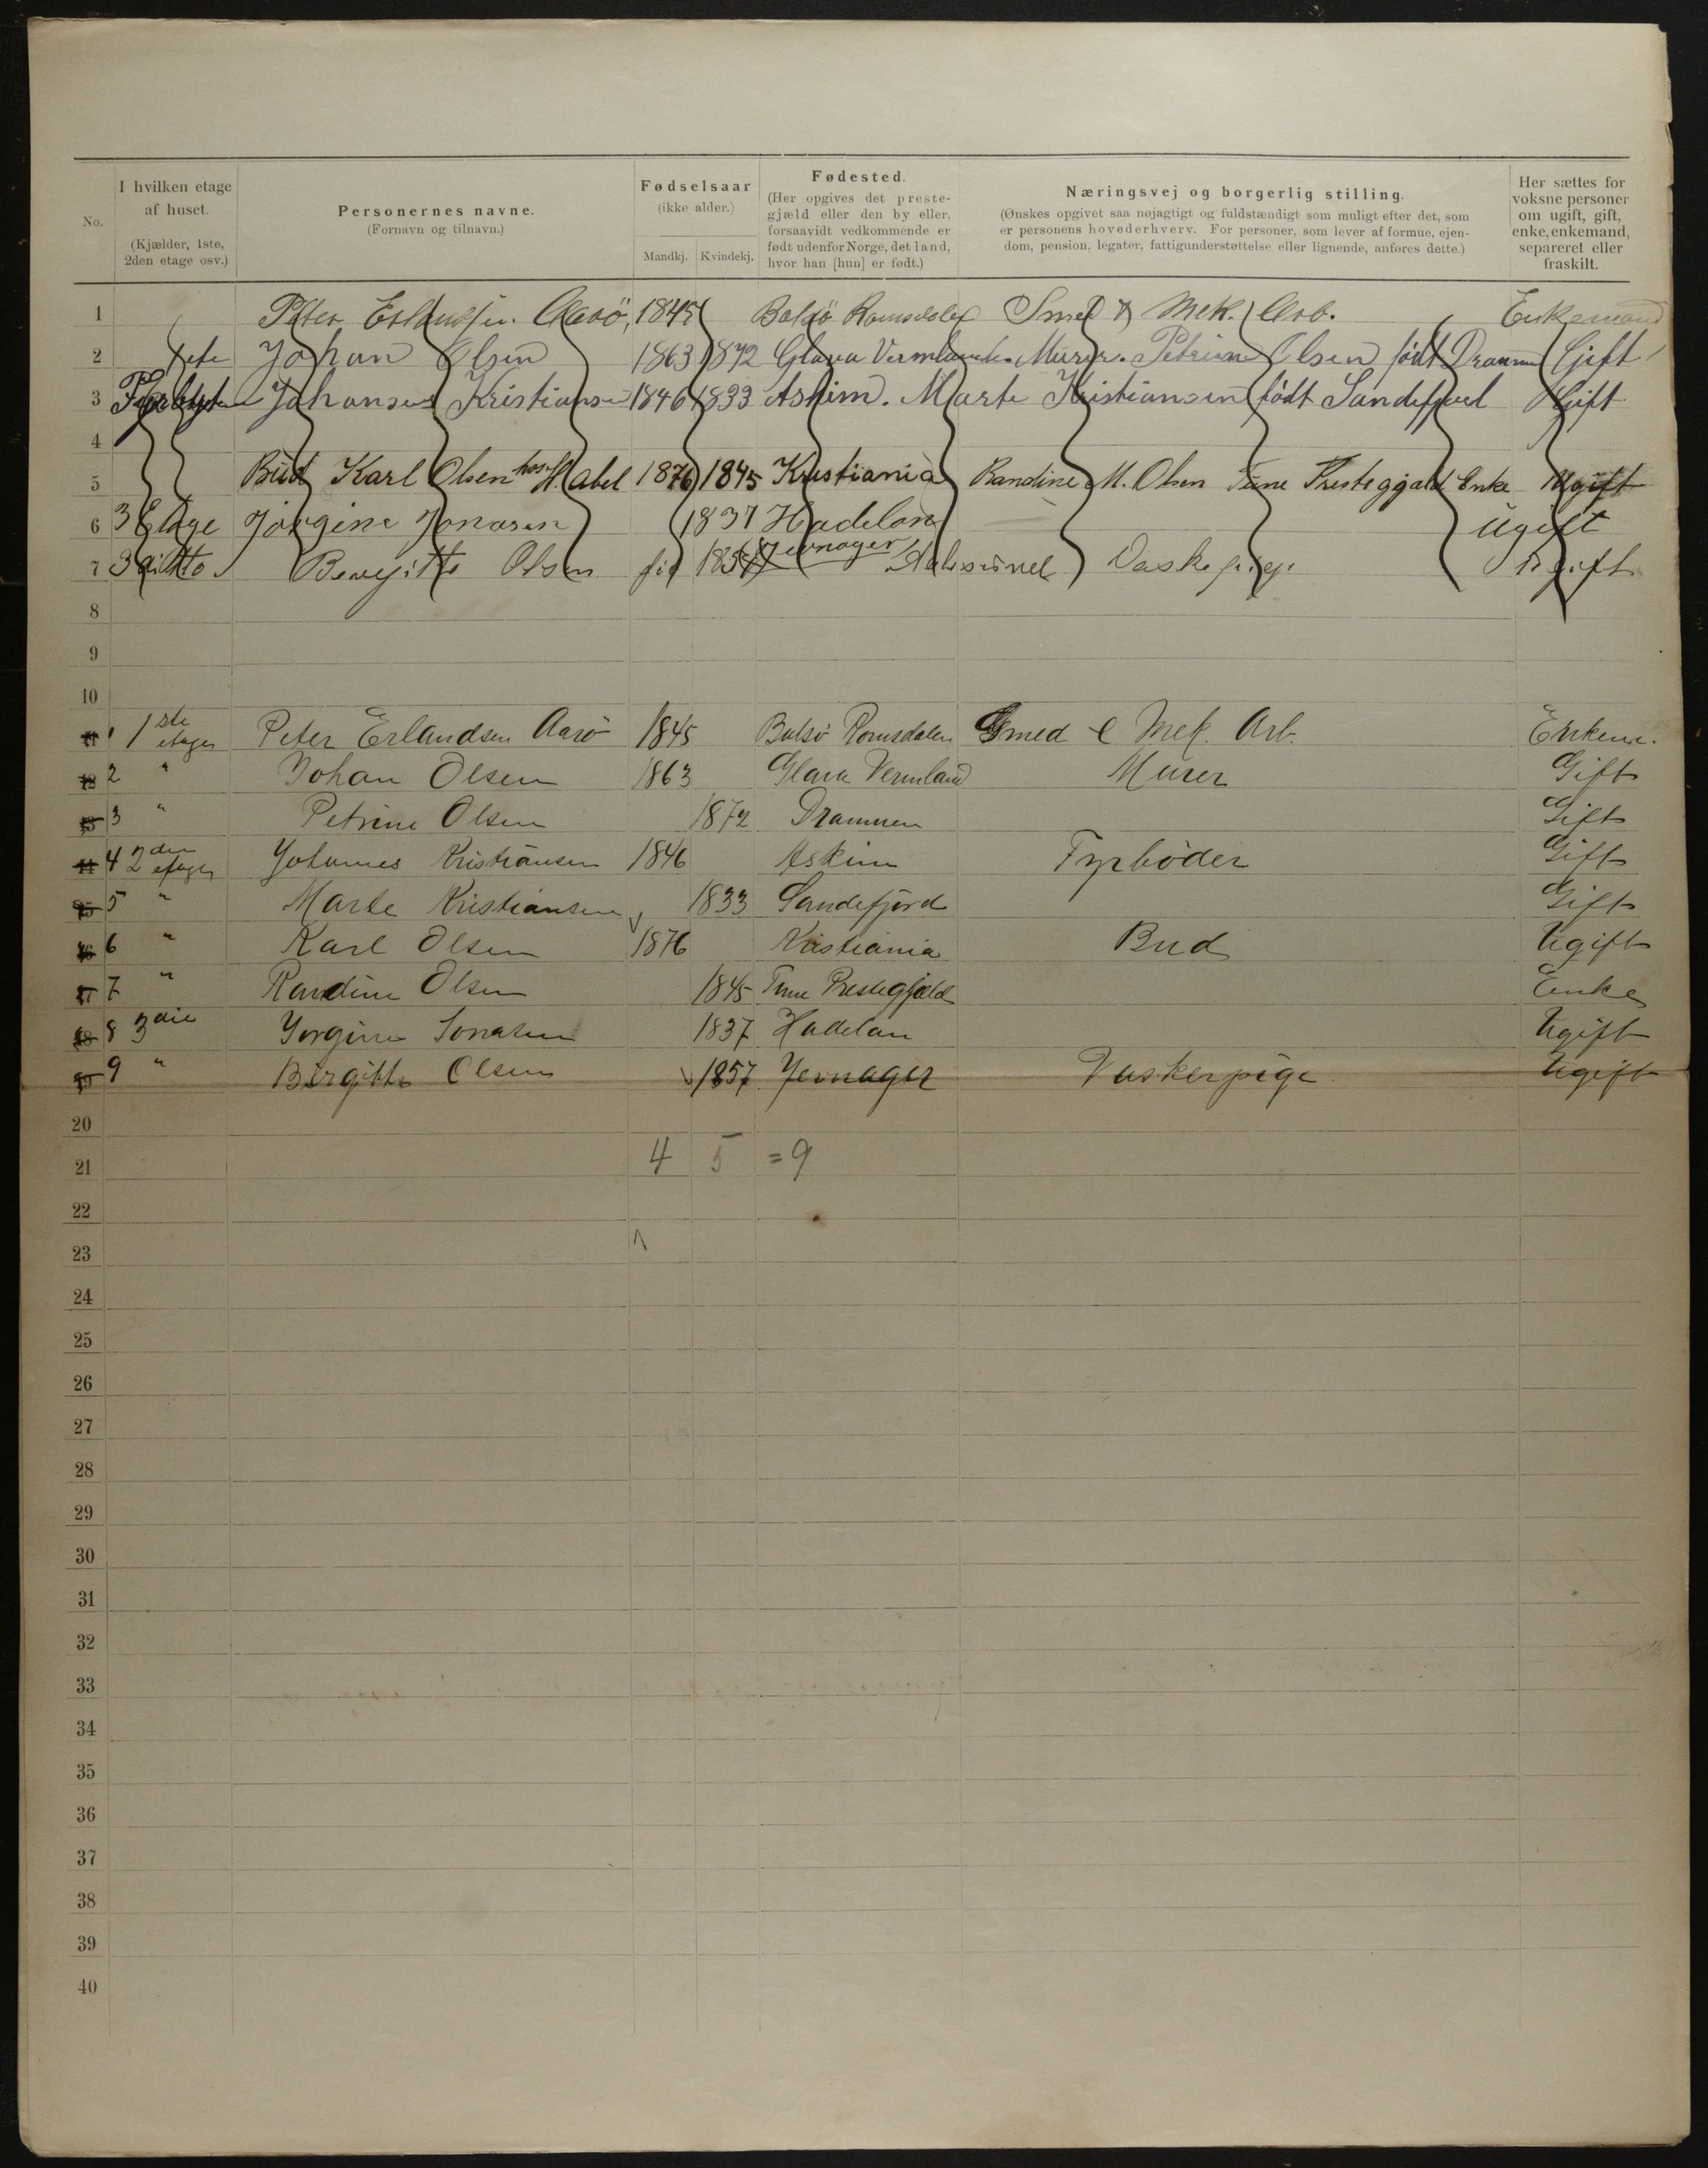 No.
I hvilken etage
af huset.
(Kjælder, 1ste,
2den etage osv.)
Personernes navne.
(Fornavn og tilnavn.)
Fødselsaar
(ikke alder.)
Mandkj. Kvindekj.
Fødested.
(Her opgives det preste-
gjæld eller den by eller,
forsaavidt vedkommende er
født udenfor Norge, det land,
hvor han [hun] er født.)
Næringsvej og borgerlig stilling.
(Ønskes opgivet saa nøjagtigt og fuldstændigt som muligt efter det, som
er personens hovederhverv. For personer, som lever af formue, ejen-
dom, pension, legater, fattigunderstøttelse eller lignende, anføres dette.)
Her sættes for
voksne personer
om ugift, gift,
enke, enkemand,
separeret eller
fraskilt.
1 Peter Aasö, 1845 Bolsö Romsdalen Smed & Mek. Arb. Enkemand
2 Johan Olsen 1863 1872 Glava Vermland Murer. Petrine Olsen født Drammen Gjift
3 Johanses Kristiansen 1846 1833 Askim. Marte Kristiansen født Sandefjord Gift
4
5 Bud Karl Olsen hos H. Abel 1876 1845 Kristiania Randine M. Olsen Tune Presteggjæld Enke Ugift
6 3 Etage Jörgine Jonasen 1837 Hadelan Ugift
7 3 ditto Bergitte Olsen 1857 Jevnager Vaskepige Ugift
8
9
10
1 1ste etage Peter Erlandsen Aasö 1845 Bolsö Romsdalen Smed & Mek. Arb. Enkem.
2 " Johan Olsen 1863 Glava Vermland Murer Gift
3 " Petrine Olsen 1872 Drammen Gift
4 2den etage Johannes Kristiansen 1846 Askim Fyrböder Gift
5 " Marte Kristiansen 1833 Sandefjord Gift
6 " Karl Olsen 1876 Kristiania Bud Ugift
7 " Randine Olsen 1845 Tune Prestegjæld Enke
8 3die Jorgine Jonasen 1837 Hadelan Ugift
9 " Birgitte Olsen 1857 Jevnager Vaskerpige Ugift
20
21 4 5 = 9
22
23
24
25
26
27
28
29
30
31
32
33
34
35
36
37
38
39
40